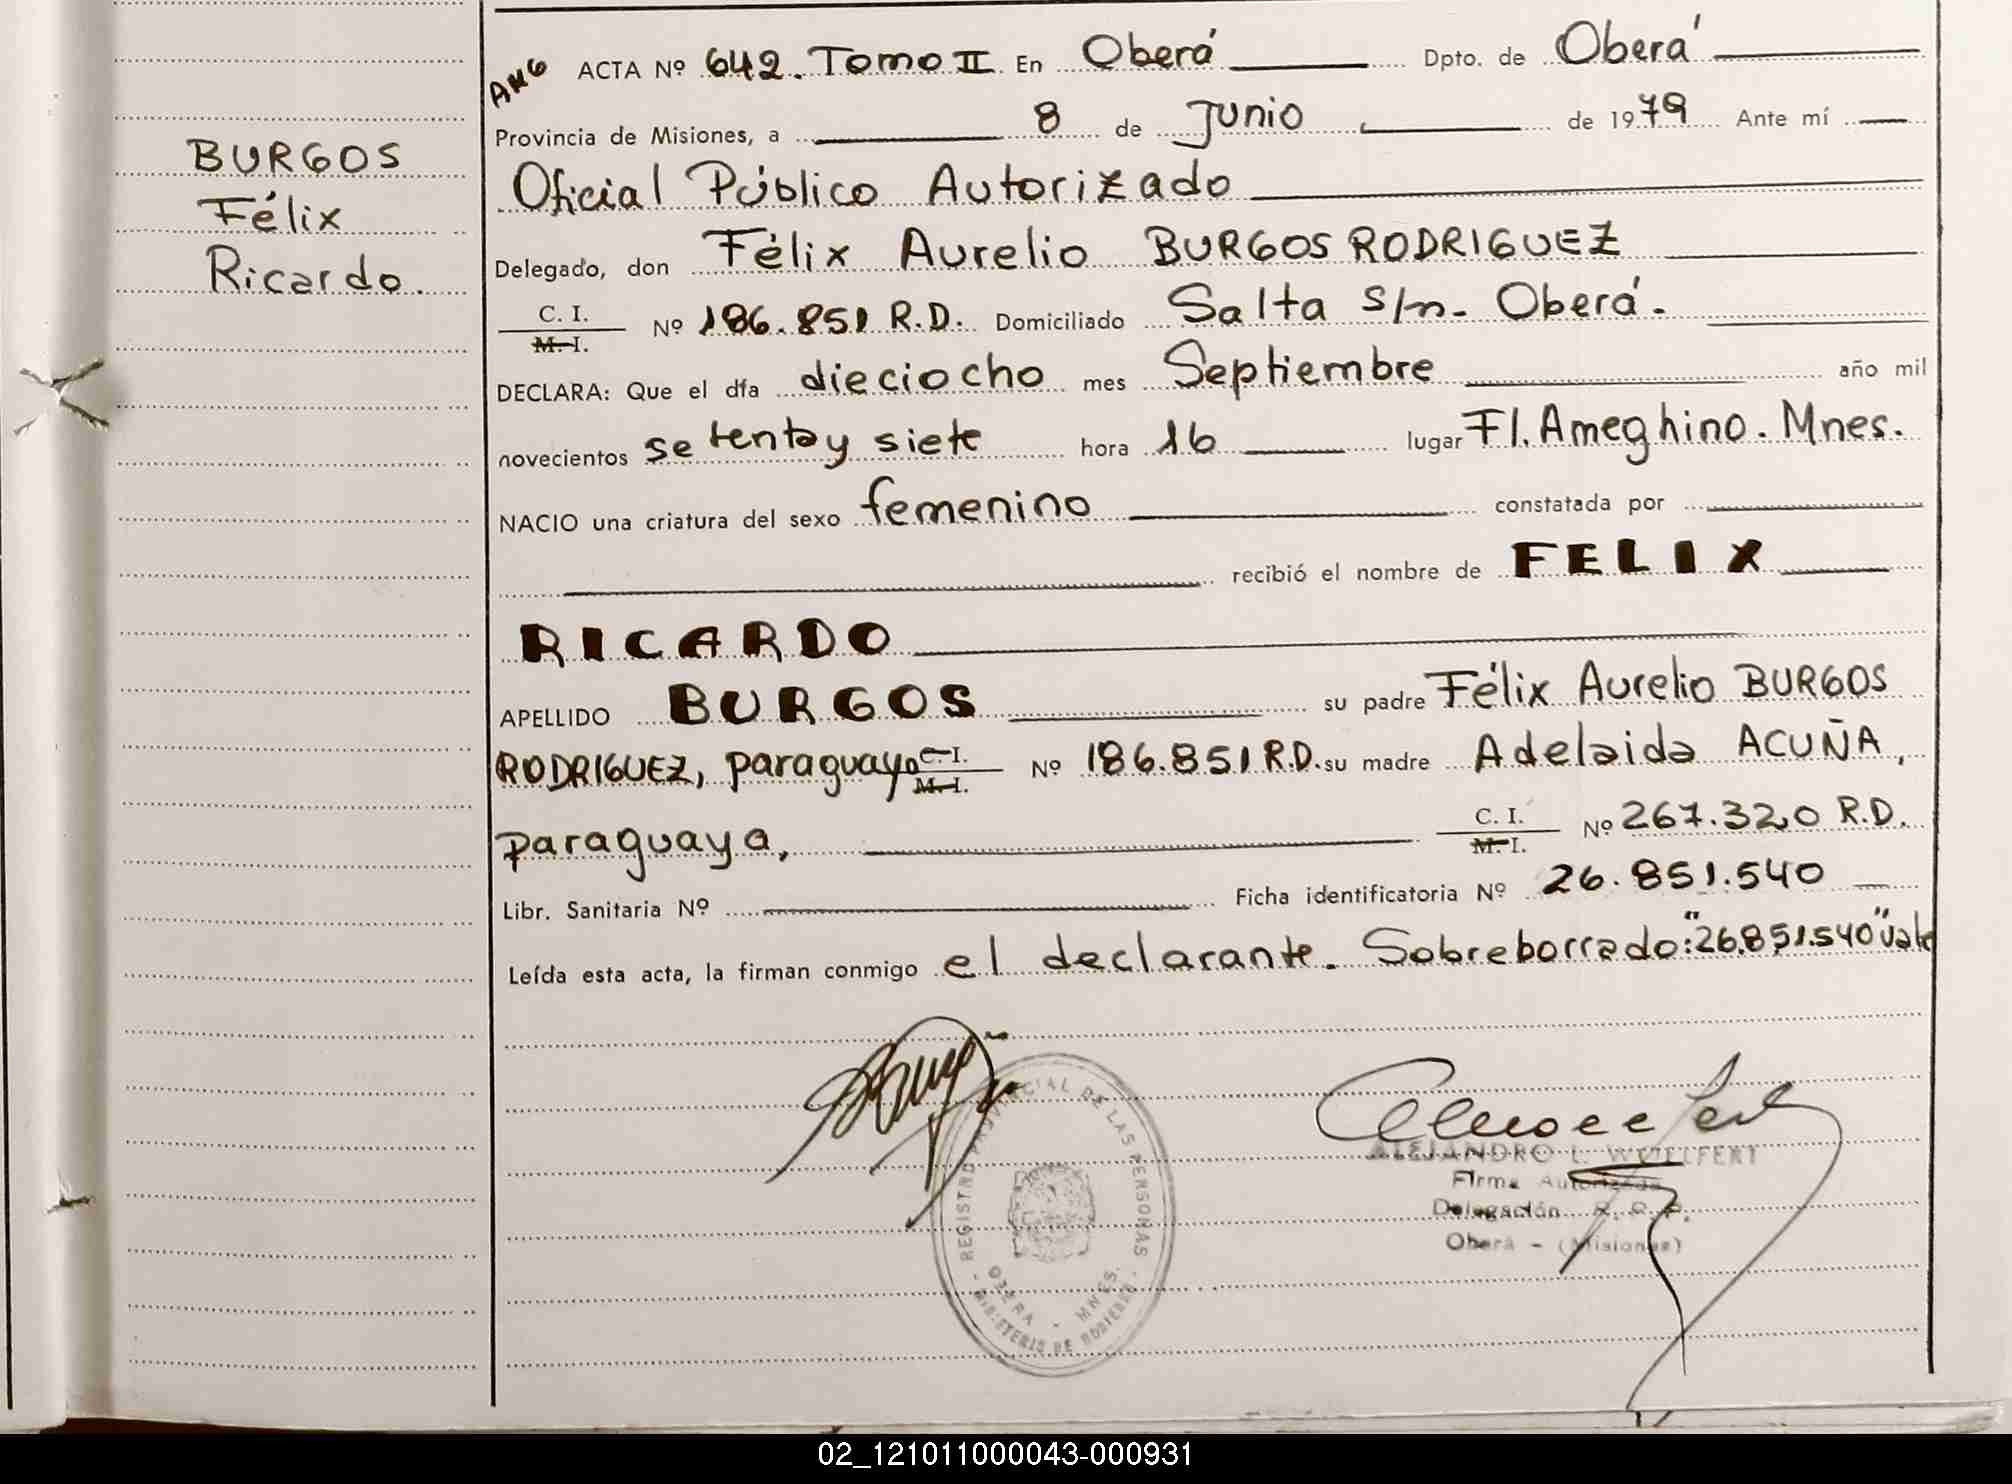 BURGOS
Félix
Ricardo.
ACTA Nº 642. Tomo II En Oberá Dpto. de Oberá
Provincia de Misiones, a 8 de Junio de 1979 Ante mí
Oficial Público Autorizado
Delegado, don Félix Aurelio BURGOS RODRIGUEZ
C. I.
M. I. Nº 186.851 R.D. Domiciliado Salta s/n- Oberá.
DECLARA: Que el día dieciocho mes Septiembre año mil
novecientos setenta y siete hora 16 lugar Fl. Ameghino. Mnes.
NACIO una criatura del sexo femenino constatada por
recibió el nombre de FELIX
RICARDO
APELLIDO BURGOS su padre Félix Aurelio BURGOS
RODRIGUEZ, paraguayo C. I. M. I. Nº 186.851 R.D. su madre Adelaida ACUÑA,
paraguaya, C. I. M. I. Nº 267.320 R.D.
Libr. Sanitaria Nº Ficha identificatoria Nº 26.851.540
Leída esta acta, la firman conmigo el declarante. Sobreborrado: "26.851.540" vale
REGISTRO PROVINCIAL DE LAS PERSONAS
OBERA - MNES.
MINISTERIO DE GOBIERNO
ALEJANDRO L. WUELFERT
Firma Autorizada
Delegación R. P. P.
Oberá - (Misiones)
02_121011000043-000931